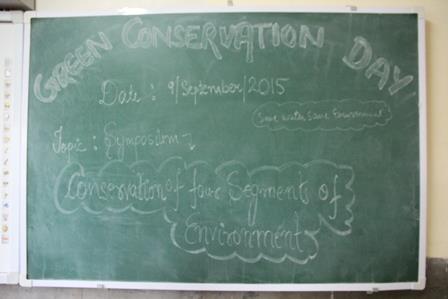 GREEN CONSERVATION DAY
Date : 9/September/2015
Save water Save Environment
Topic : Symposium
Conservation of four Segments of
Environment